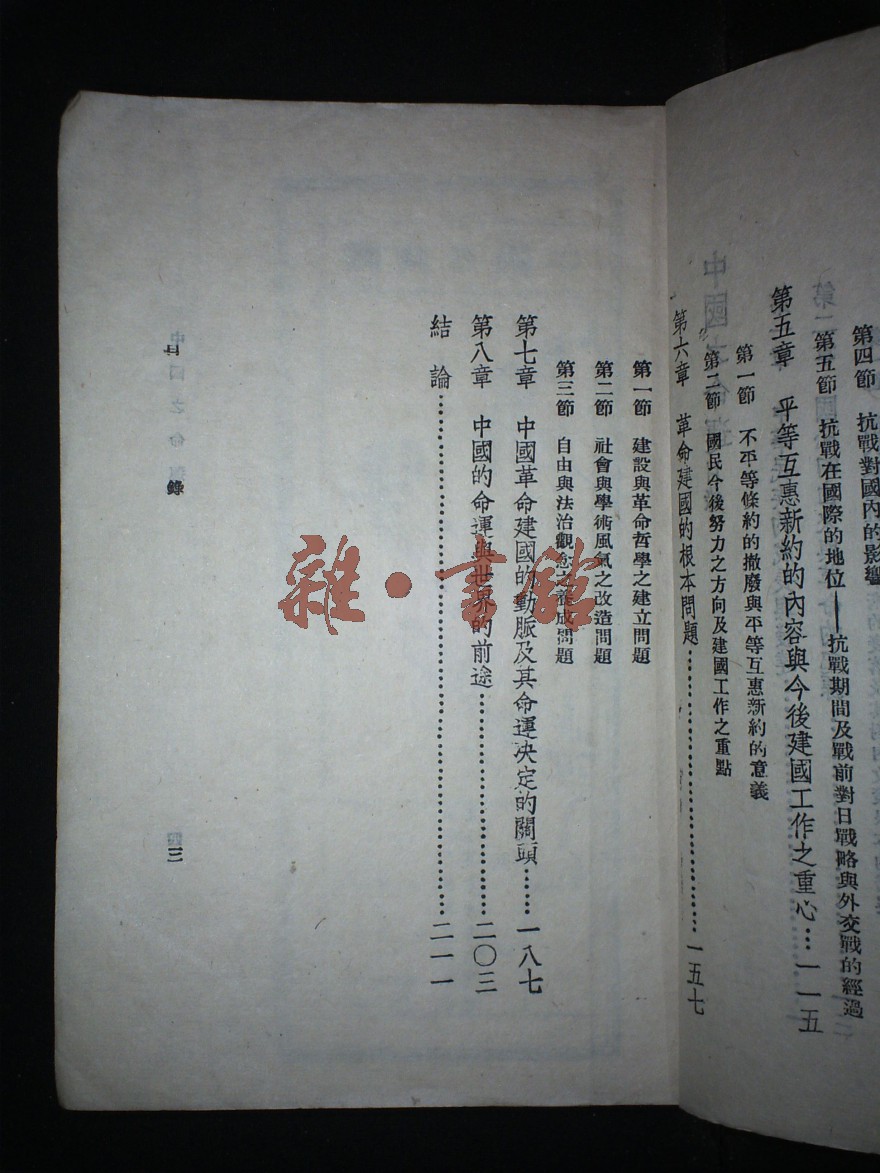 第四節 抗戰對國內的影響
第五節 抗戰在國際的地位——抗戰期間及戰前對日戰略與外交戰的經過
第五章 平等互惠新約的內容與今後建國工作之重心…一一五
第一節 不平等條約的撤廢與平等互惠新約的意義
第二節 國民今後努力之方向及建國工作之重點
第六章 革命建國的根本問題……一五七
第一節 建設與革命哲學之建立問題
第二節 社會與學術風氣之改造問題
第三節 自由與法治觀念之養成問題
第七章 中國革命建國的動脈及其命運決定的關頭……一八七
第八章 中國的命運與世界的前途……二〇三
結論……二一一
目錄
三
雜·書館